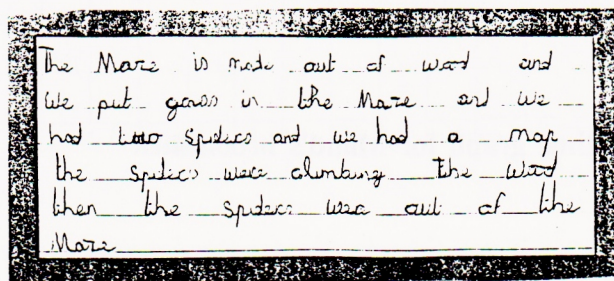 The Maze is made out of wood and
We put grass in the Maze and We
had two Spiders and we had a map
the Spiders were climbing the wood
then the Spiders wer out of the
Maze